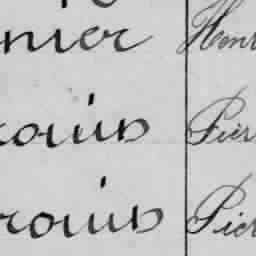 nier Henr
rouin Pier
rouin Pier